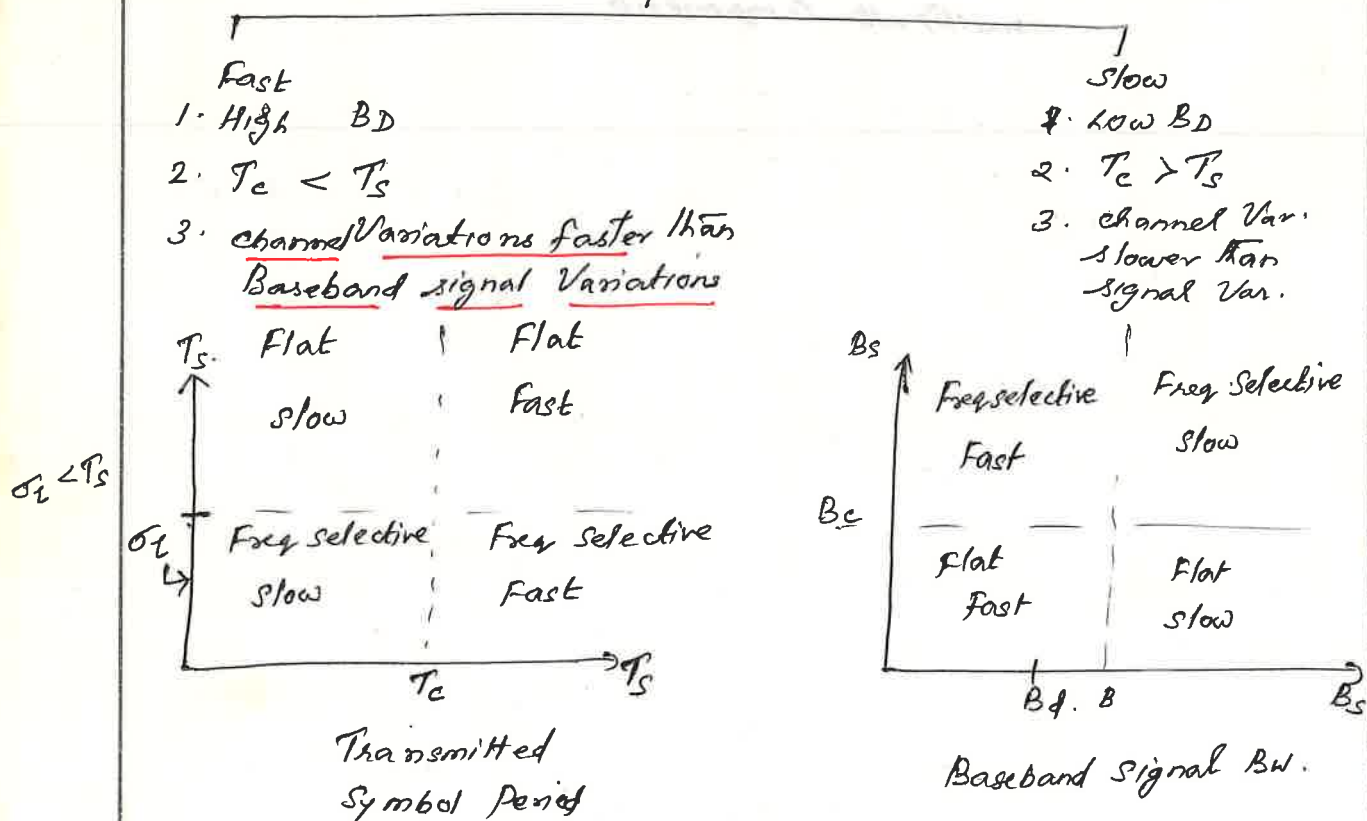 Fast
1. High BD
2. Tc < Ts
3. channel Variations faster than
Baseband signal Variations
Slow
1. Low BD
2. Tc > Ts
3. channel Var.
slower than
signal Var.
Ts.
Flat
slow
Flat
Fast
στ < Ts
στ
Freq selective
slow
Freq selective
Fast
Tc
Ts
Transmitted
Symbol Period
Bs
Freq selective
Fast
Freq. Selective
slow
Bc
Flat
Fast
Flat
slow
Bd. B
Bs
Baseband signal BW.